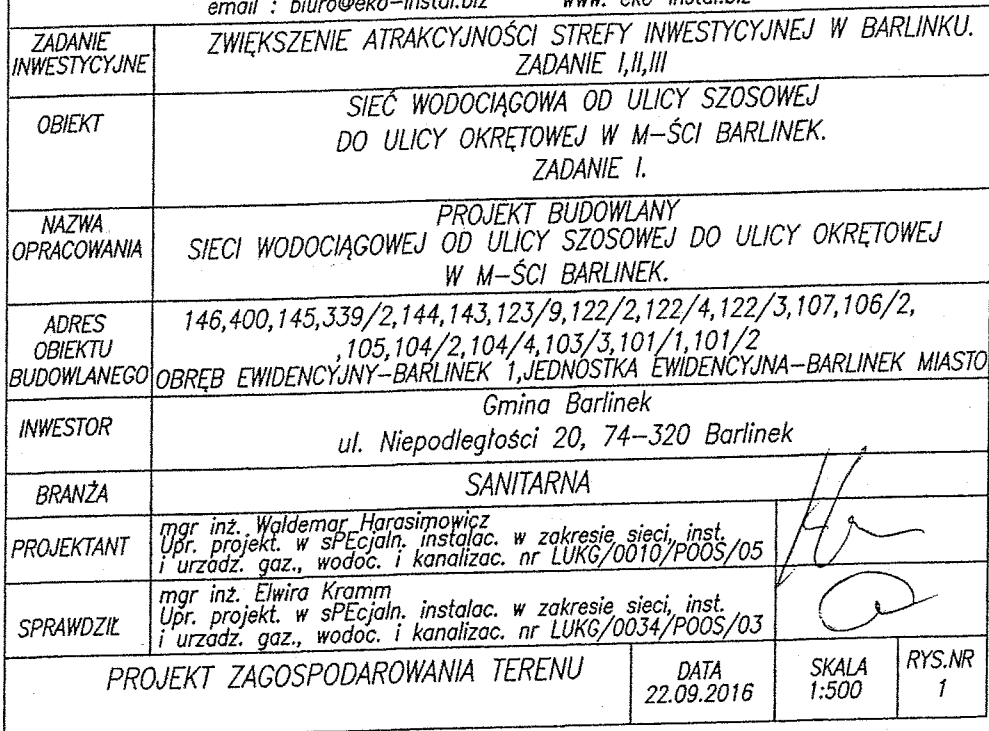 email : biuro@eko-instal.biz www. eko-instal.biz
ZADANIE INWESTYCYJNE
ZWIĘKSZENIE ATRAKCYJNOŚCI STREFY INWESTYCYJNEJ W BARLINKU.
ZADANIE I,II,III
OBIEKT
SIEĆ WODOCIĄGOWA OD ULICY SZOSOWEJ
DO ULICY OKRĘTOWEJ W M-ŚCI BARLINEK.
ZADANIE I.
NAZWA
OPRACOWANIA
PROJEKT BUDOWLANY
SIECI WODOCIĄGOWEJ OD ULICY SZOSOWEJ DO ULICY OKRĘTOWEJ
W M-ŚCI BARLINEK.
ADRES
OBIEKTU
BUDOWLANEGO
146,400,145,339/2,144,143,123/9,122/2,122/4,122/3,107,106/2,
,105,104/2,104/4,103/3,101/1,101/2
OBRĘB EWIDENCYJNY-BARLINEK 1,JEDNOSTKA EWIDENCYJNA-BARLINEK MIASTO
INWESTOR
Gmina Barlinek
ul. Niepodległości 20, 74-320 Barlinek
BRANŻA
SANITARNA
PROJEKTANT
mgr inż. Waldemar Harasimowicz
Upr. projekt. w sPEcjaln. instalac. w zakresie sieci, inst.
i urządz. gaz., wodoc. i kanalizac. nr LUKG/0010/POOS/05
SPRAWDZIŁ
mgr inż. Elwira Kramm
Upr. projekt. w sPEcjaln. instalac. w zakresie sieci, inst.
i urzadz. gaz., wodoc. i kanalizac. nr LUKG/0034/POOS/03
PROJEKT ZAGOSPODAROWANIA TERENU
DATA
22.09.2016
SKALA
1:500
RYS.NR
1